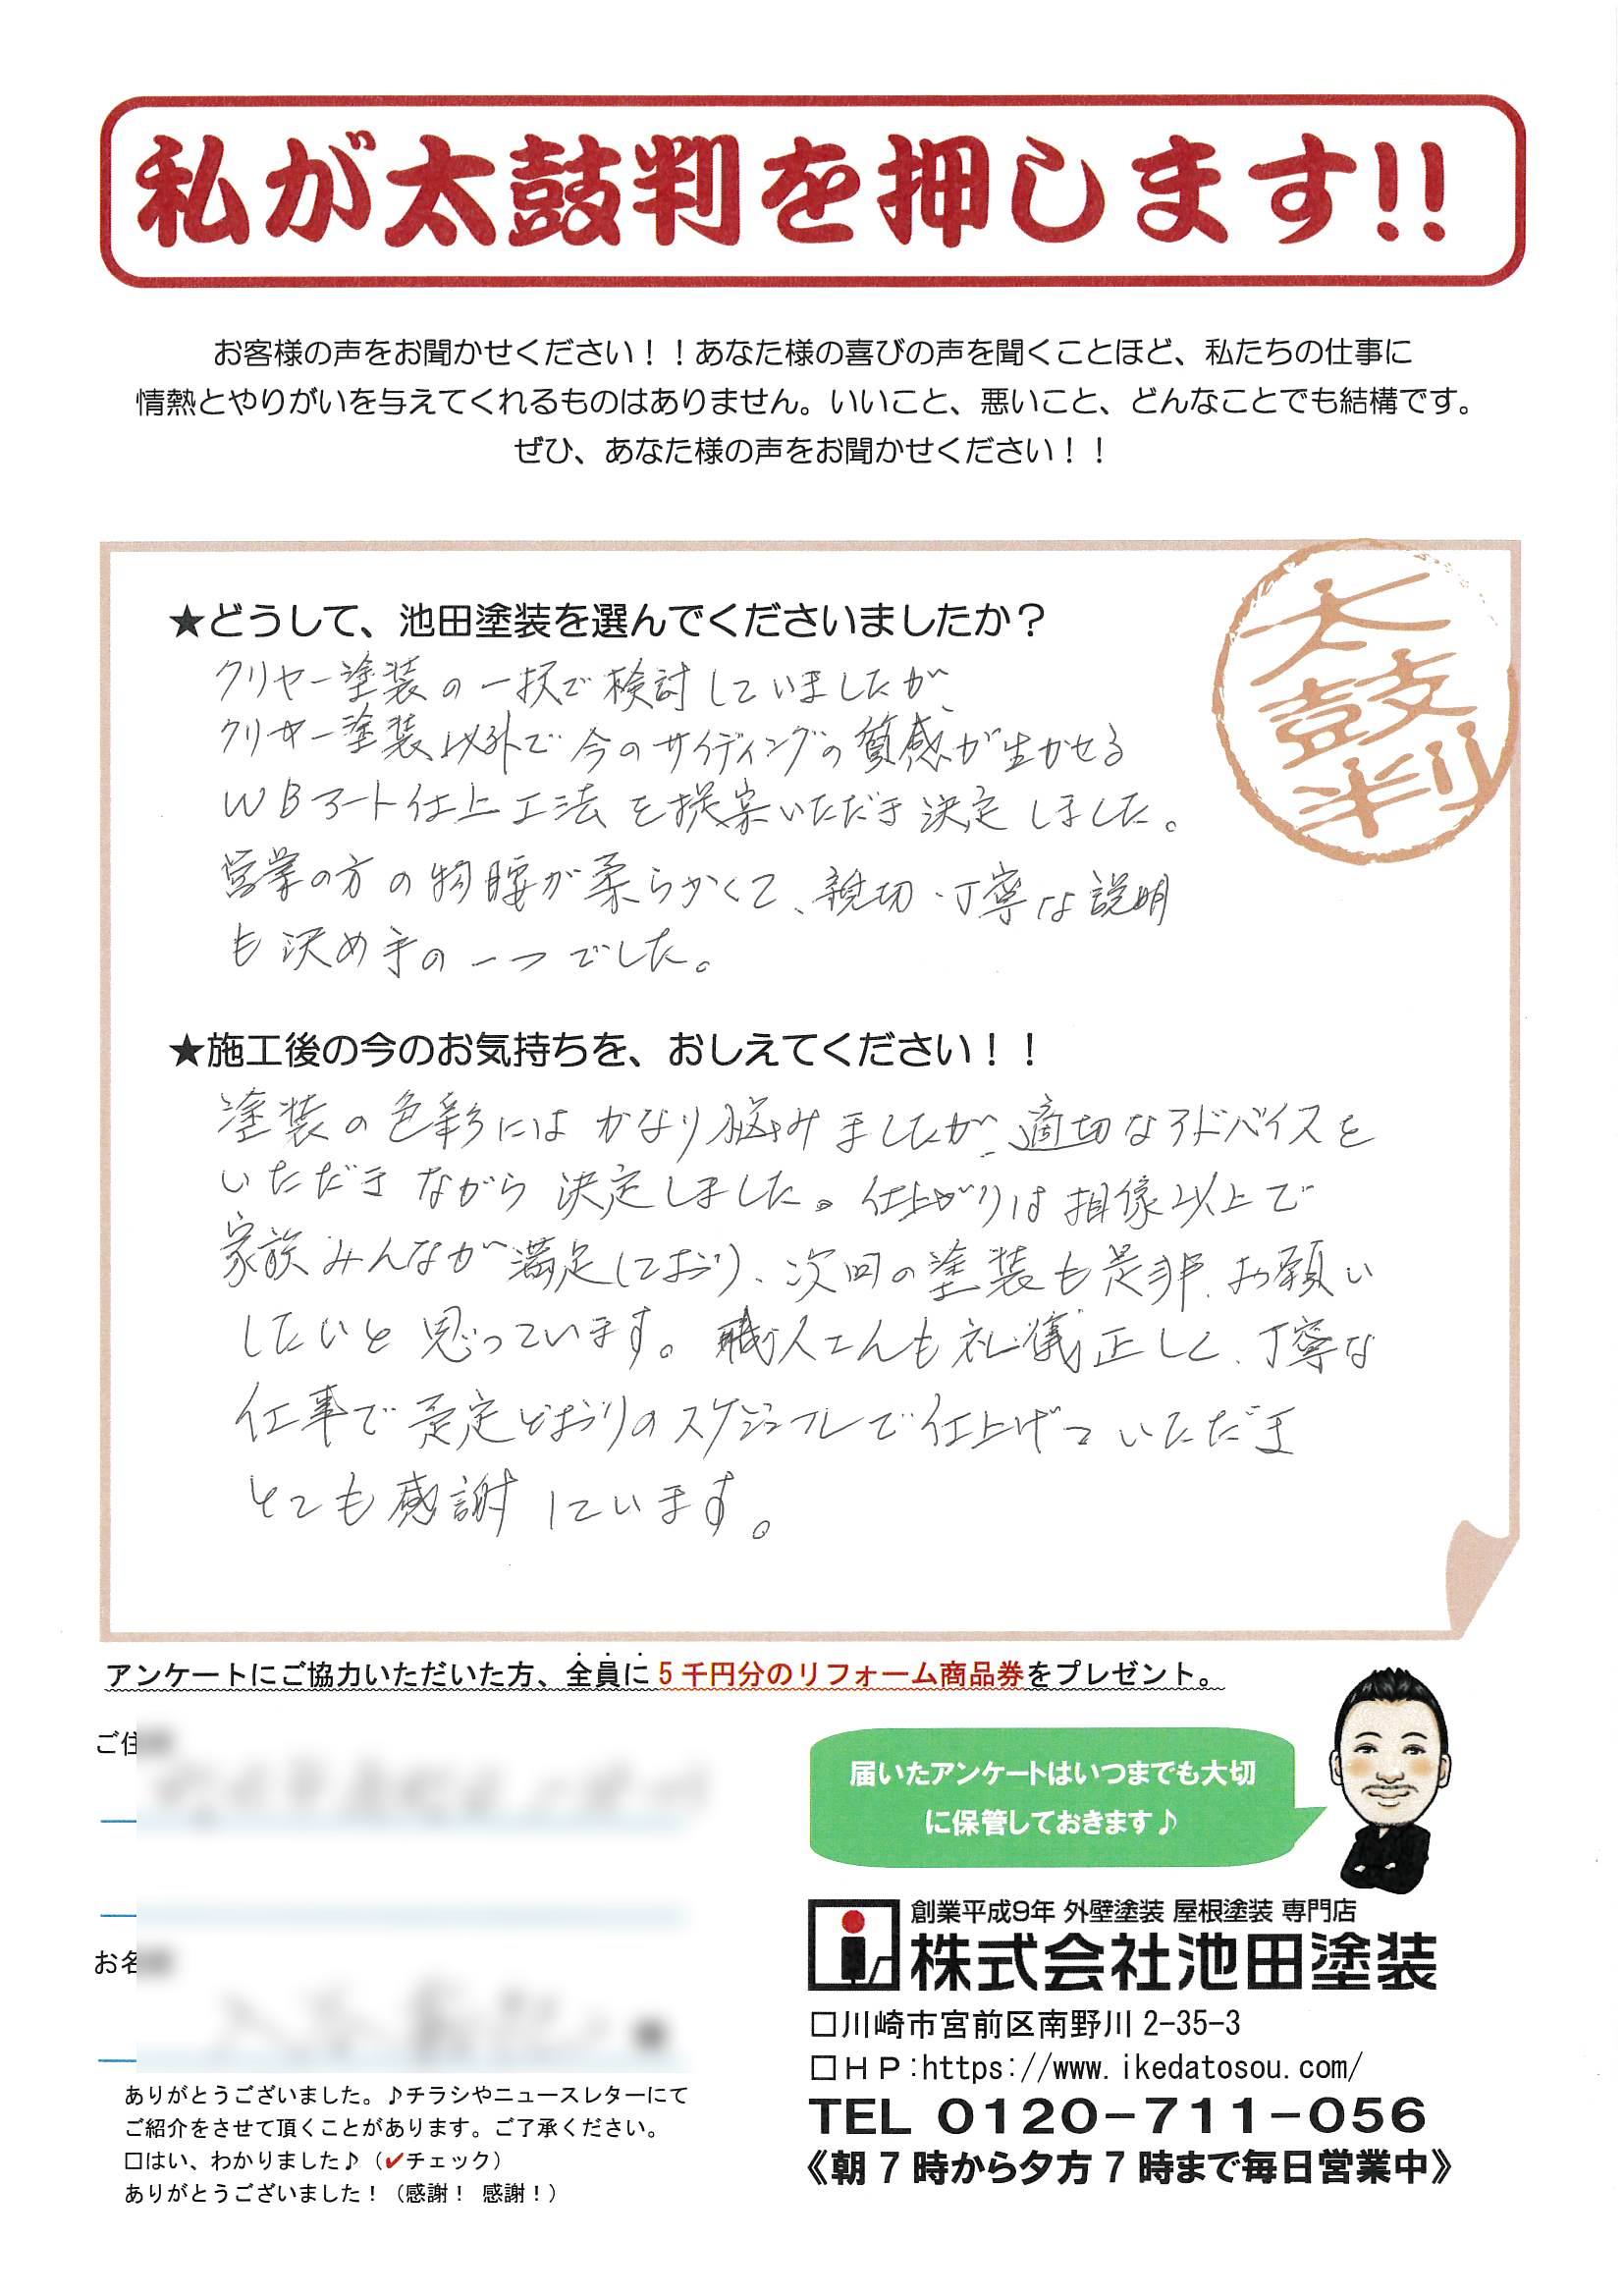 私が太鼓判を押します!!
お客様の声をお聞かせください！！あなた様の喜びの声を聞くことほど、私たちの仕事に
情熱とやりがいを与えてくれるものはありません。いいこと、悪いこと、どんなことでも結構です。
ぜひ、あなた様の声をお聞かせください！！
太
鼓
判
★どうして、池田塗装を選んでくださいましたか？
クリヤー塗装の一択で検討していましたが、
クリヤー塗装以外で今のサイディングの質感が生かせる
WBアート仕上工法を提案いただき決定しました。
営業の方の物腰が柔らかくて、親切・丁寧な説明
も決め手の一つでした。
★施工後の今のお気持ちを、おしえてください！！
塗装の色彩にはかなり悩みましたが、適切なアドバイスを
いただきながら決定しました。仕上がりは想像以上で
家族みんなが満足しており、次回の塗装も是非、お願い
したいと思っています。職人さんも礼儀正しく、丁寧な
仕事で予定どおりのスケジュールで仕上げていただき
とても感謝しています。
アンケートにご協力いただいた方、全員に５千円分のリフォーム商品券をプレゼント。
ご住
お名
届いたアンケートはいつまでも大切
に保管しておきます♪
創業平成9年 外壁塗装 屋根塗装 専門店
株式会社池田塗装
□川崎市宮前区南野川 2-35-3
□ＨＰ:https://www.ikedatosou.com/
TEL 0120-711-056
《朝７時から夕方７時まで毎日営業中》
ありがとうございました。♪チラシやニュースレターにて
ご紹介をさせて頂くことがあります。ご了承ください。
□はい、わかりました♪（✔チェック）
ありがとうございました！（感謝！ 感謝！）